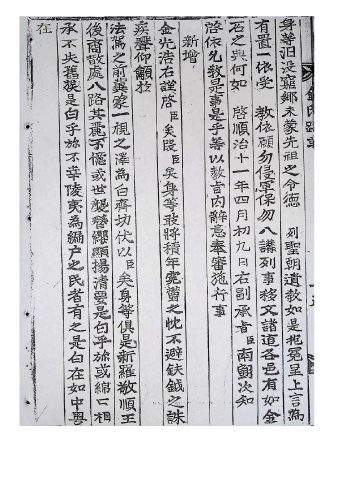 身等汨没窮鄕未蒙先祖之令德 列聖朝遺敎如是抱冤呈上言爲
有置一依受 敎依願勿侵軍保勿八講列事移文諸道各邑有如金
石之典何如 啓順治十一年四月初九日右副承旨臣南 次知
啓依允敎是事是乎等以敎旨內辭意奉審施行事
新增
金先浩右謹啓臣矣段臣矣身等敢將積年冤蘊之忱不避鈇鉞之誅
疾聲仰籲於
法駕之前冀蒙一視之澤爲白齊切伏以臣矣身等俱是新羅敬順王
後裔散處八路其麗不億或世襲簪纓顯揚淸要是白乎旀或綿 相
承不失舊族是白乎旀不幸陵夷爲編户之民者有之是白在如中
在